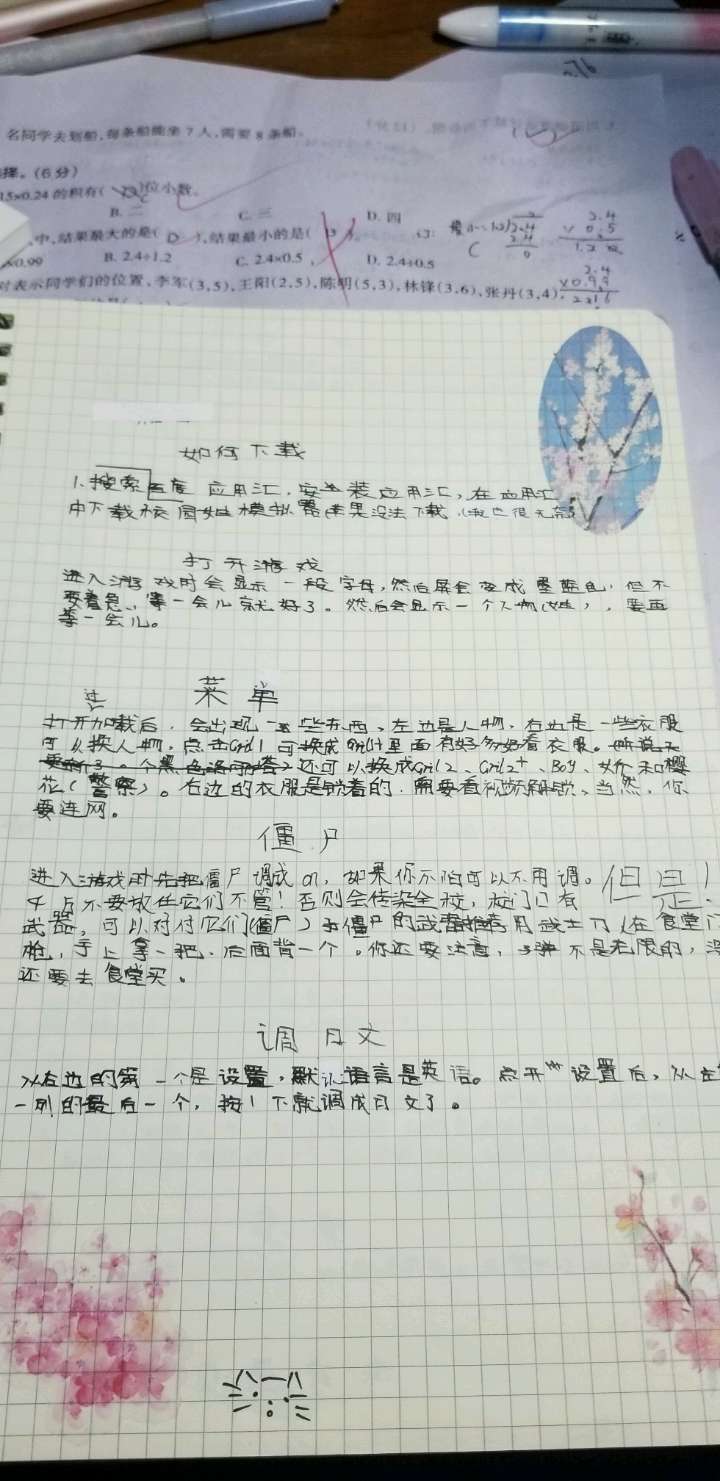 名同学去划船,每条船能坐7人,需要8条船。
择。(6分)
15×0.24的积有( )位小数。
B. 二 C. 三 D. 四
中,结果最大的是( D ),结果最小的是(
×0.99 B. 2.4÷1.2 C. 2.4×0.5 D. 2.4÷0.5
对表示同学们的位置,李军(3,5),王阳(2,5),陈明(5,3),林锋(3,6),张丹(3,4)
2.4
× 0.5
2.4
×0.99
如何下载
1、搜索百度 应用汇,安装应用汇,在应用汇
中下载校园模拟器(如果没法下载,(我也很无奈)
打开游戏
进入游戏时会显示一段字母,然后屏会变成墨蓝色,但不
要着急、等一会儿就好了。然后会显示一个人物(姓),要再
等一会儿。
菜单
进
打开加载后,会出现一些东西,左边是人物,右边是一些衣服
可以换人物,点击Girl1可换成 里面有好多好看衣服。
还可以换成Girl2、Girl2+、Boy、 和樱
花(警察)。右边的衣服是锁着的,需要看视频解锁、当然,你
要连网。
僵尸
进入游戏时先把僵尸调成01,如果你不怕可以不用调。但是!
千万不要放任它们不管!否则会传染全校,校门口有
武器,可以对付它们(僵尸)杀僵尸的武器推荐用武士刀(在食堂门
枪,手上拿一把、后面背一个。你还要注意,子弹不是无限的,没
还要去食堂买。
调日文
从右边的第一个是设置,默认语言是英语。点开设置后,从左
一列的最后一个,按1下就调成日文了。